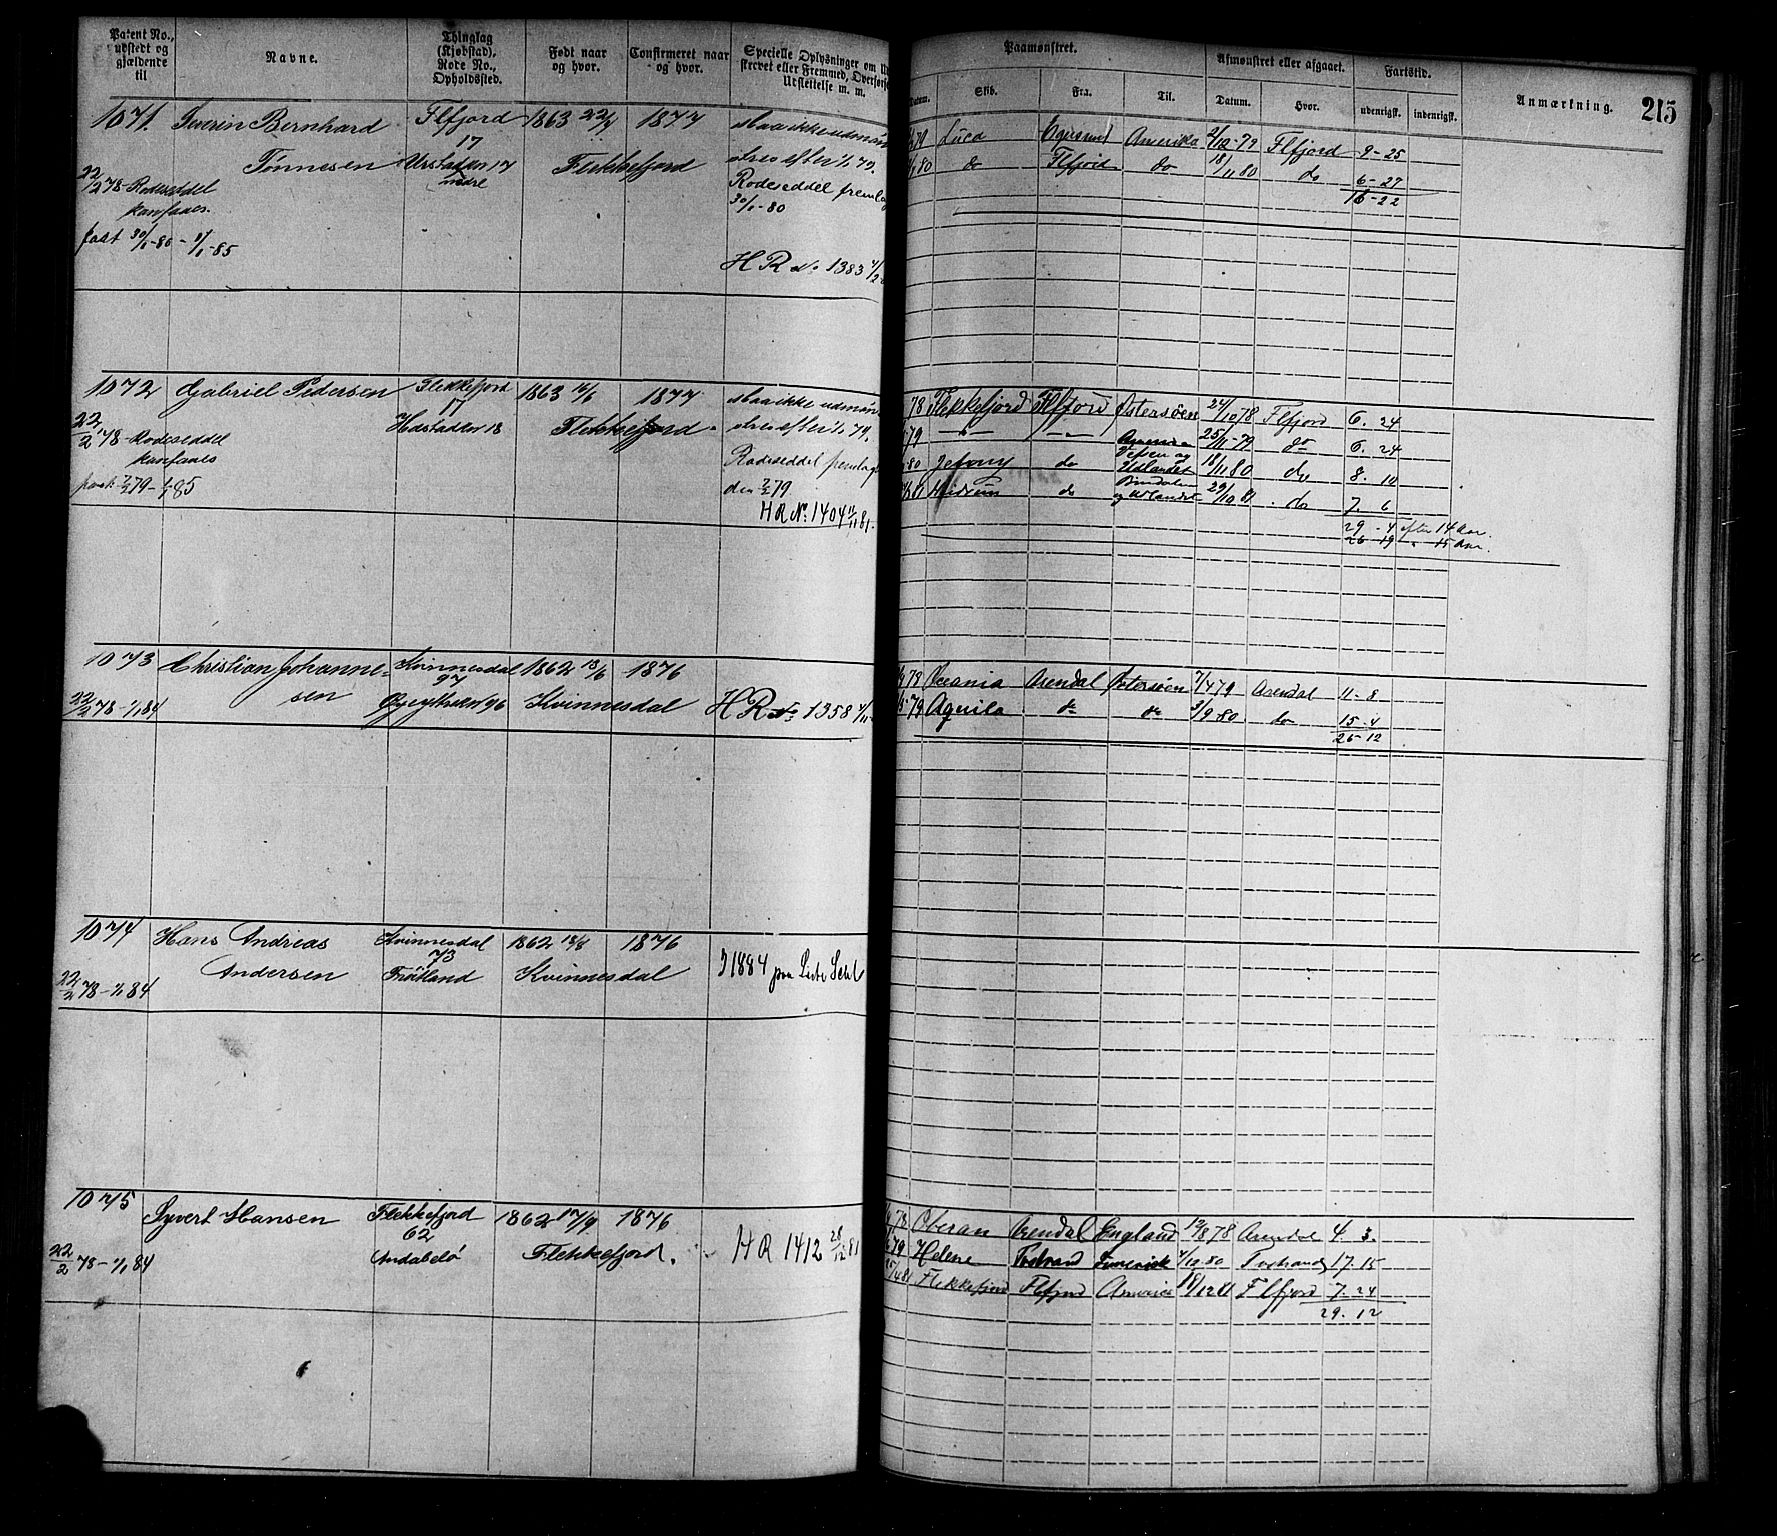 Patent No., udstedt og gjældende til
Navne.
Thinglag (Kjøbstad), Rode No., Opholdssted.
Født naar og hvor.
Confirmeret naar og hvor.
Specielle Oplysninger om
strevet eller Fremmed, Overførse
Udslettelse m. m.
Paamønstret.
Afmønstret eller afgaaet.
Fartstid.
Anmærkning.
215
Datum.
Skib.
Fra.
Til.
Datum.
Hvor.
udenrigsk.
indenrigsk.
1071. Severin Bernhard Tønnesen
Flfjord 17
1863 22/7
1877
Flekkefjord
22/2 78 - Rodeseddel kanfaaes.
fast 30/1-80 - 1/1-85
Maa ikke udmøn
stres efter 1/1 79.
Rodeseddel fremlag
30/1-80
H R No 1383
79 Luca Egersund Amerika 2/12-79 Flfjord 9-25
80 do Flfjord do 18/11 80 do 6-27
16-22
1072 Gabriel Pedersen
Flekkefjord 17
1863 16/6
1877
Flekkefjord
22/2 78 - Rodeseddel kanfaaes
2/2 79 - 1/1 85
Maa ikke udmøn
stres efter 1/1 79.
Rodeseddel fremlagt
den 2/2 79
H R No. 1404 11/11 81.
78 Flekkefjord Flfjord Østersøen 24/10 78 Flfjord 6. 24
79 -"- -"- 25/11-79 do 6. 24
80 do Vefsen og Udlandet 18/11 80 do 8. 10
81 do og Udlandet 29/10 81 do 7. 6
29 - 4 efter 14 Aar.
26 19 " 15 Aar.
1073 Christian Johannesen
Kvinnesdal 97
1862 18/6
1876
Kvinnesdal
22/2 78 - 1/1 84
H R No 1358
79 Oceania Arendal Østersøen 7/4 79 Arendal 11-8
79 Aquila do do 3/9 80 do 15-4
26-12
1074 Hans Andreas Andersen
Kvinnesdal 73
Frøitland
1862 18/8
1876
Kvinnesdal
22/2 78 - 1/1 84
1884
1075 Syvert Hansen
Flekkefjord 62
Andabelø
1862 17/9
1876
Flekkefjord.
22/2 78 - 1/1 84
H R 1412 28/12 81
78 Oberan Arendal England 12/8 78 Arendal 4. 3.
79 Helene Tvedestrand Amerika 4/10 80 17. 15
81 Flekkefjord Flfjord America 18/12 81 Flfjord 7. 24
29. 12